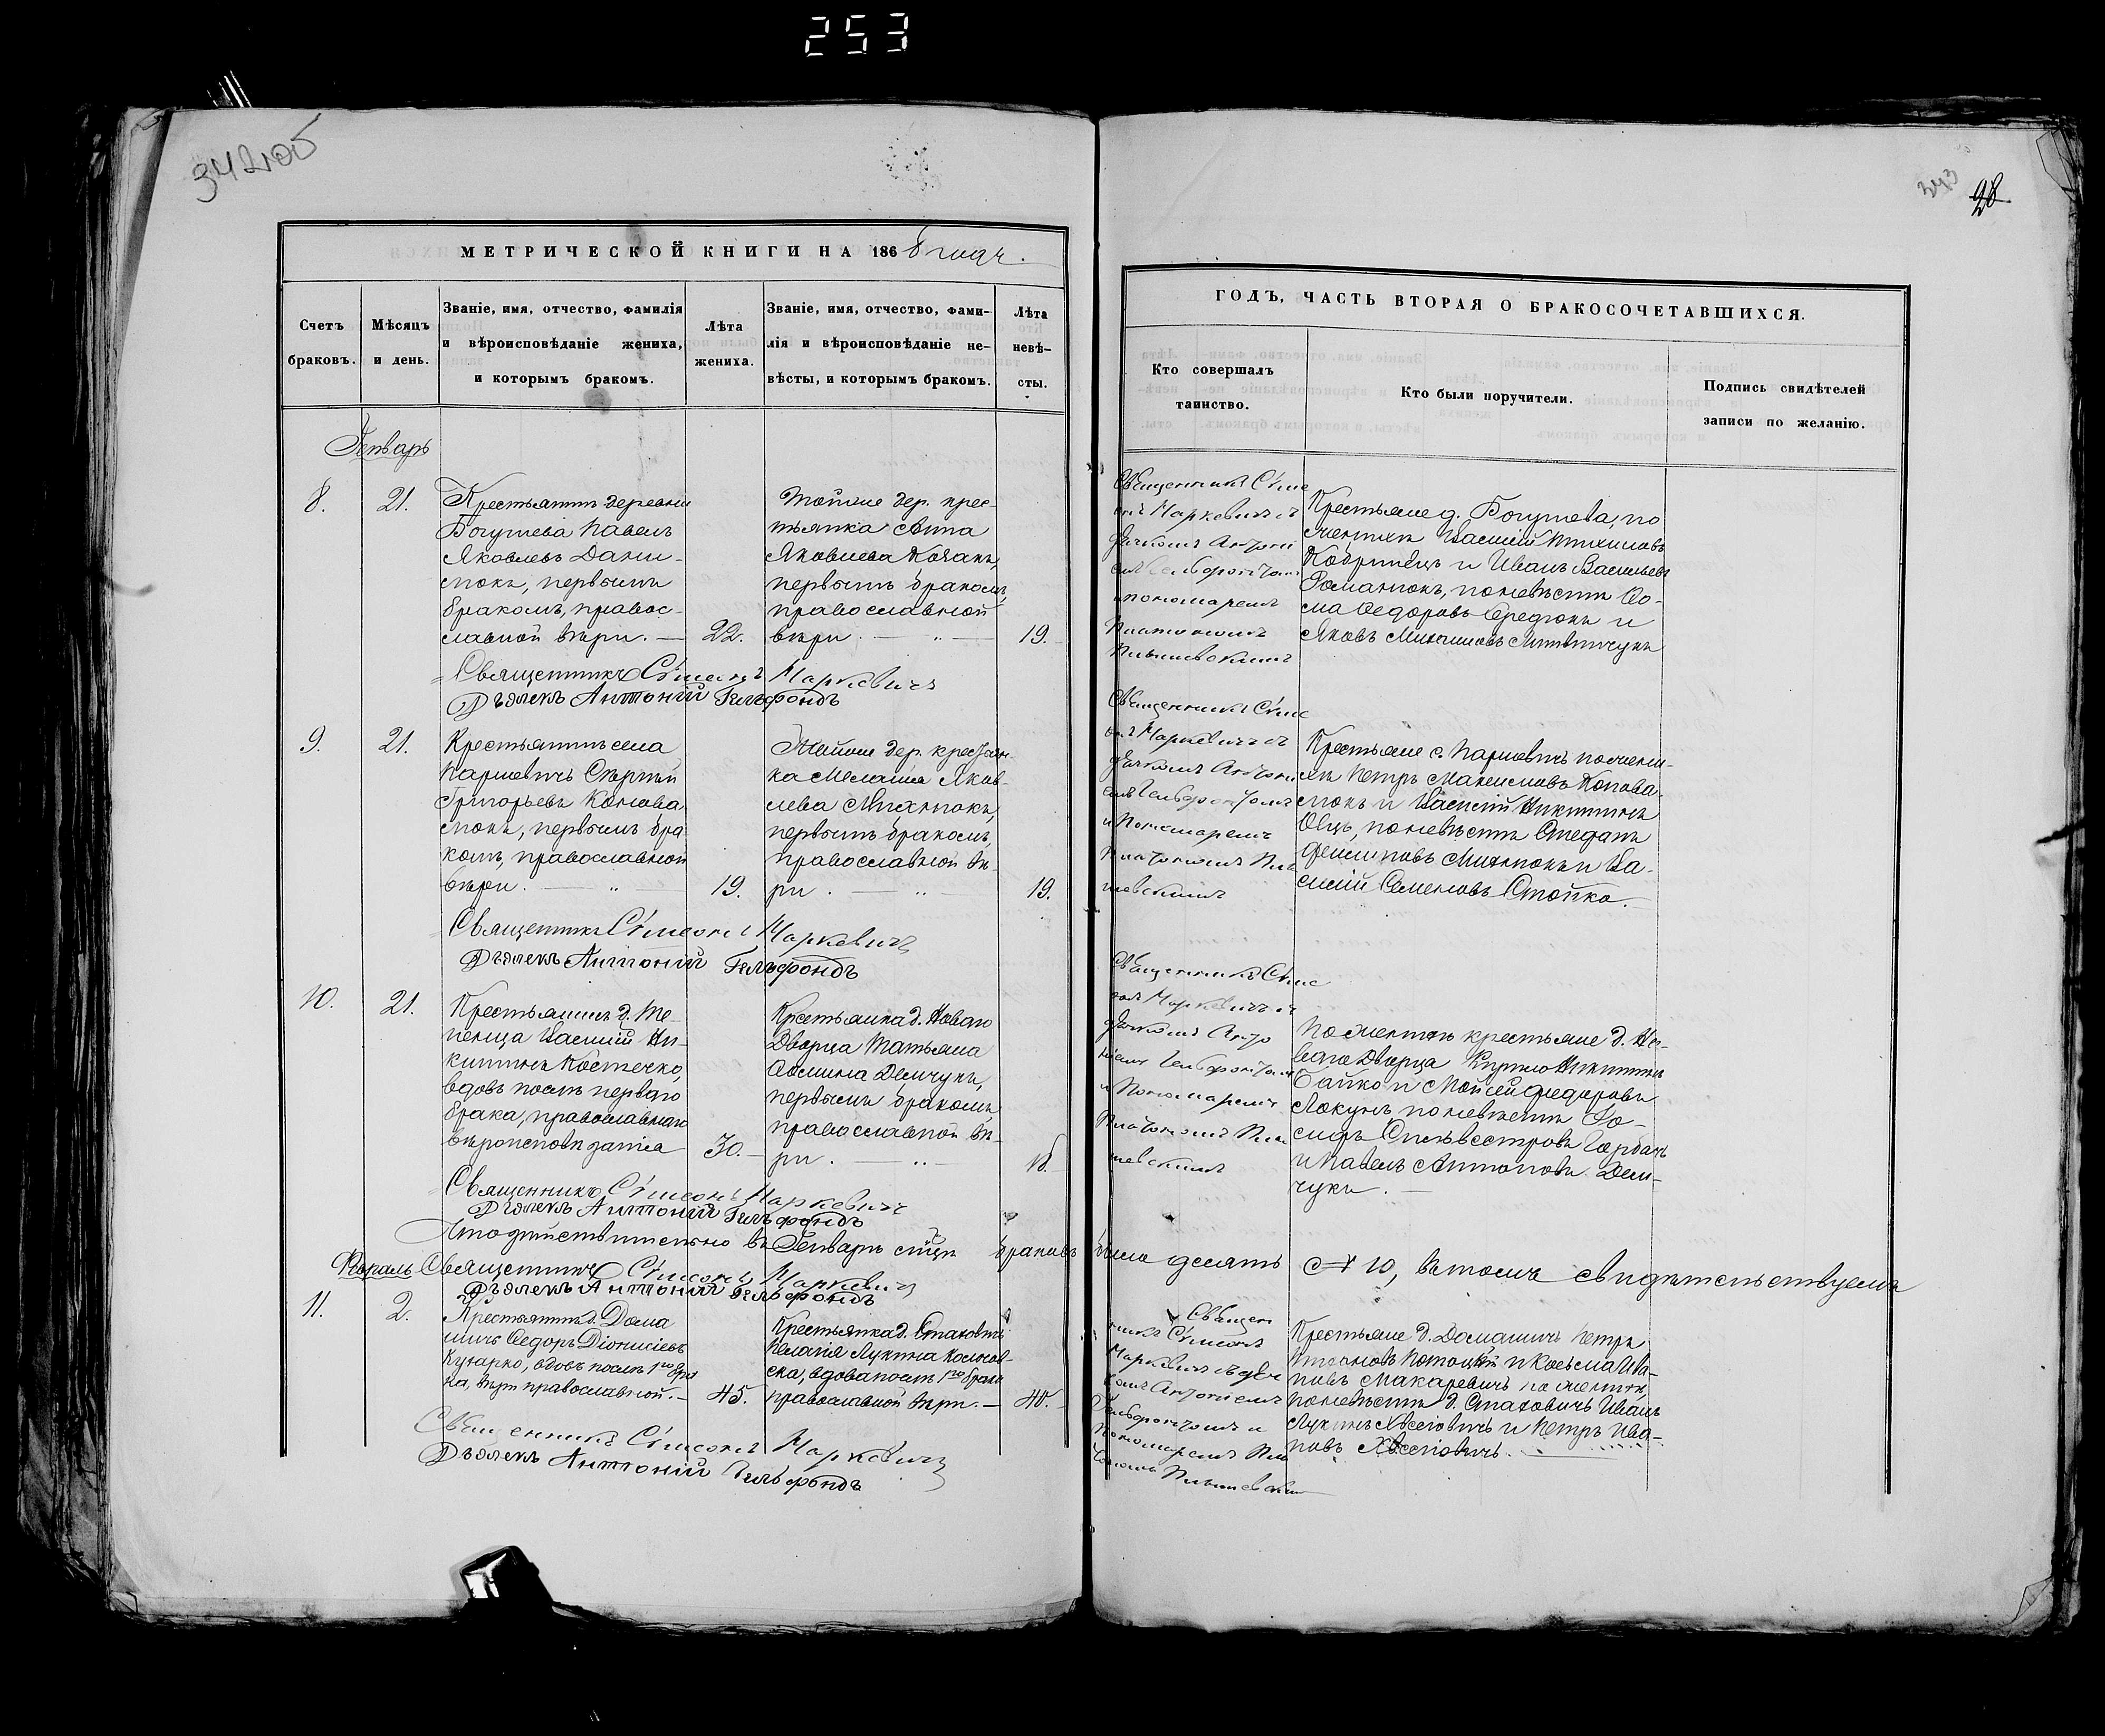 253
342об
343
28
МЕТРИЧЕСКОЙ КНИГИ НА 1868 годъ.
Счетъ браковъ.
Мѣсяцъ и день.
Званіе, имя, отчество, фамилія
и вѣроисповѣданіе жениха,
и которымъ бракомъ.
Лѣта жениха.
Званіе, имя, отчество, фами-
лія и вѣроисповѣданіе не-
вѣсты, и которымъ бракомъ.
Лѣта невѣ-
сты.
Генварь
8.
21.
Крестьянинъ деревни
Богушева Павелъ
Яковлевъ Дани-
люкъ, первымъ
бракомъ, правос-
лавной вѣры.
22.
Тойже дер. крес-
тьянка Анна
Яковлева Козакъ,
первымъ бракомъ,
православной
вѣры.
19.
Священникъ Сімеонъ Маркевичъ
Дьячекъ Антоній Гельфондъ
9.
21.
Крестьянинъ села
Паршевичъ Сергій
Григорьевъ Конова
люкъ, первымъ бра
комъ, православной
вѣры.
19.
Тойже дер. крестьян-
ка Меланія Яков-
лева Михнюкъ,
первымъ бракомъ,
православной вѣ-
ры.
19.
Священникъ Сімеонъ Маркевичъ
Дьячекъ Антоній Гельфондъ
10.
21.
Крестьянинъ д. Те-
пенца Василій Ни-
китинъ Костечко,
вдовъ послѣ перваго
брака, православнаго
вѣроисповѣданія
30.
Крестьянка д. Новаго
Дворца Татьяна
Ѳомина Демчукъ,
первымъ бракомъ
православной вѣ-
ры.
18.
Священникъ Сімеонъ Маркевичъ
Дьячекъ Антоній Гельфондъ
Что дѣйствительно въ Генварѣ м-цѣ браковъ было десять № 10, въ томъ свидѣтельствуемъ
Священникъ Сімеонъ Маркевичъ
Дьячекъ Антоній Гельфондъ
Февраль
11.
2.
Крестьянинъ д. Дома
шичъ Ѳедоръ Діонисіевъ
Кухарко, вдовъ послѣ 1го бра
ка, вѣры православной.
45.
Крестьянка д. Стаховичъ
Пелагія Лукина
вдова послѣ 1го брака
православной вѣры.
40.
Священникъ Сімеонъ Маркевичъ
Дьячекъ Антоній Гельфондъ
ГОДЪ, ЧАСТЬ ВТОРАЯ О БРАКОСОЧЕТАВШИХСЯ.
Кто совершалъ
таинство.
Кто были поручители.
Подпись свидѣтелей
записи по желанію.
Священникъ Сіме
онъ Маркевичъ съ
дьячкомъ Антоні
емъ Гельфондомъ
и пономаремъ
Платономъ
Крестьяне д. Богушева, по
женихѣ Василій
Кобринецъ и Иванъ Васильевъ
Романюкъ, по невѣстѣ Ѳо-
ма Ѳедоровъ Середюкъ и
Яковъ
Священникъ Сіме
онъ Маркевичъ съ
дьячкомъ Антоні
емъ Гельфондомъ
и Пономаремъ
Платономъ
Крестьяне с. Паршевичъ по жени-
хѣ Петръ Максимовъ Конова-
люкъ и Василій Никитинъ
Овцъ, по невѣстѣ Стефанъ
Филиповъ Михнюкъ и Ва-
силій Семеновъ Стойко.
Священникъ Сіме
онъ Маркевичъ съ
дьячкомъ Анто
ніемъ Гельфондомъ
и Пономаремъ
Платономъ
По женихѣ крестьяне д. Но-
ваго Дворца Кирило Никитинъ
Байко и Мойсей Федоровъ
Локунъ по невѣстѣ Іо-
сифъ Сильвестровъ Горбачъ
и Павелъ Антоновъ Дем-
чукъ.
Священ
никъ Сімеонъ
Маркевичъ съ дьяч
комъ Антоніемъ
Гельфондомъ и
Пономаремъ Пла
тономъ
Крестьяне д. Домашичъ Петръ
Потоцкій и Косьма Ива-
новъ Макаревичъ по женихѣ,
по невѣстѣ д. Стаховичъ Иванъ
Лукинъ и Петръ Ива-
новъ